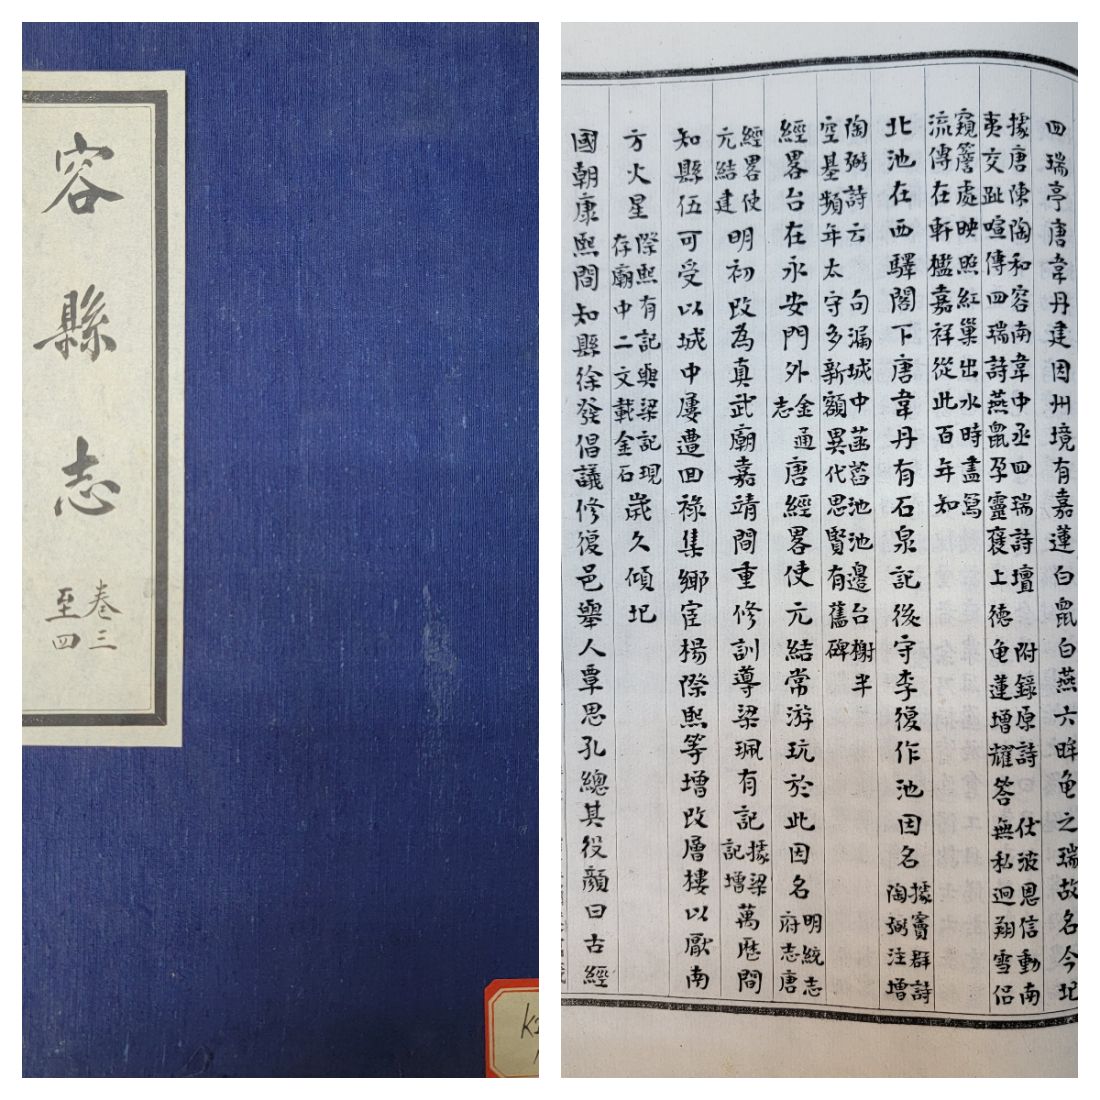 容縣志
卷三
至四
四瑞亭唐韋丹建因州境有嘉蓮白䑕白燕六眸龟之瑞故名今圮
據唐陳陶和容南韋中丞四瑞詩壇 附錄原詩 仗波恩信動南
夷交趾喧傳四瑞詩燕䑕孕靈褒上德龟蓮增耀答無私迴翔雪侣
窺簷處映照紅巢出水時盡寫
流傳在軒檻嘉祥從此百年知
北池在西驛閣下唐韋丹有石泉記後守李復作池因名據竇群詩陶弼注增
陶弼詩云 句漏城中菡萏池池邊台榭半
空基頻年太守多新額異代思賢有舊碑
經畧台在永安門外金通志唐經畧使元結常游玩於此因名明統志府志唐
經畧使元結建明初改為真武廟嘉靖間重修訓導梁珮有記據梁記增萬歷間
知縣伍可受以城中屢遭回祿集鄉宦楊際熙等增改層樓以厭南
方火星際熙有記與梁記現存廟中二文載金石歲久傾圮
國朝康熙間知縣徐發倡議修復邑舉人覃思孔總其役顏曰古經